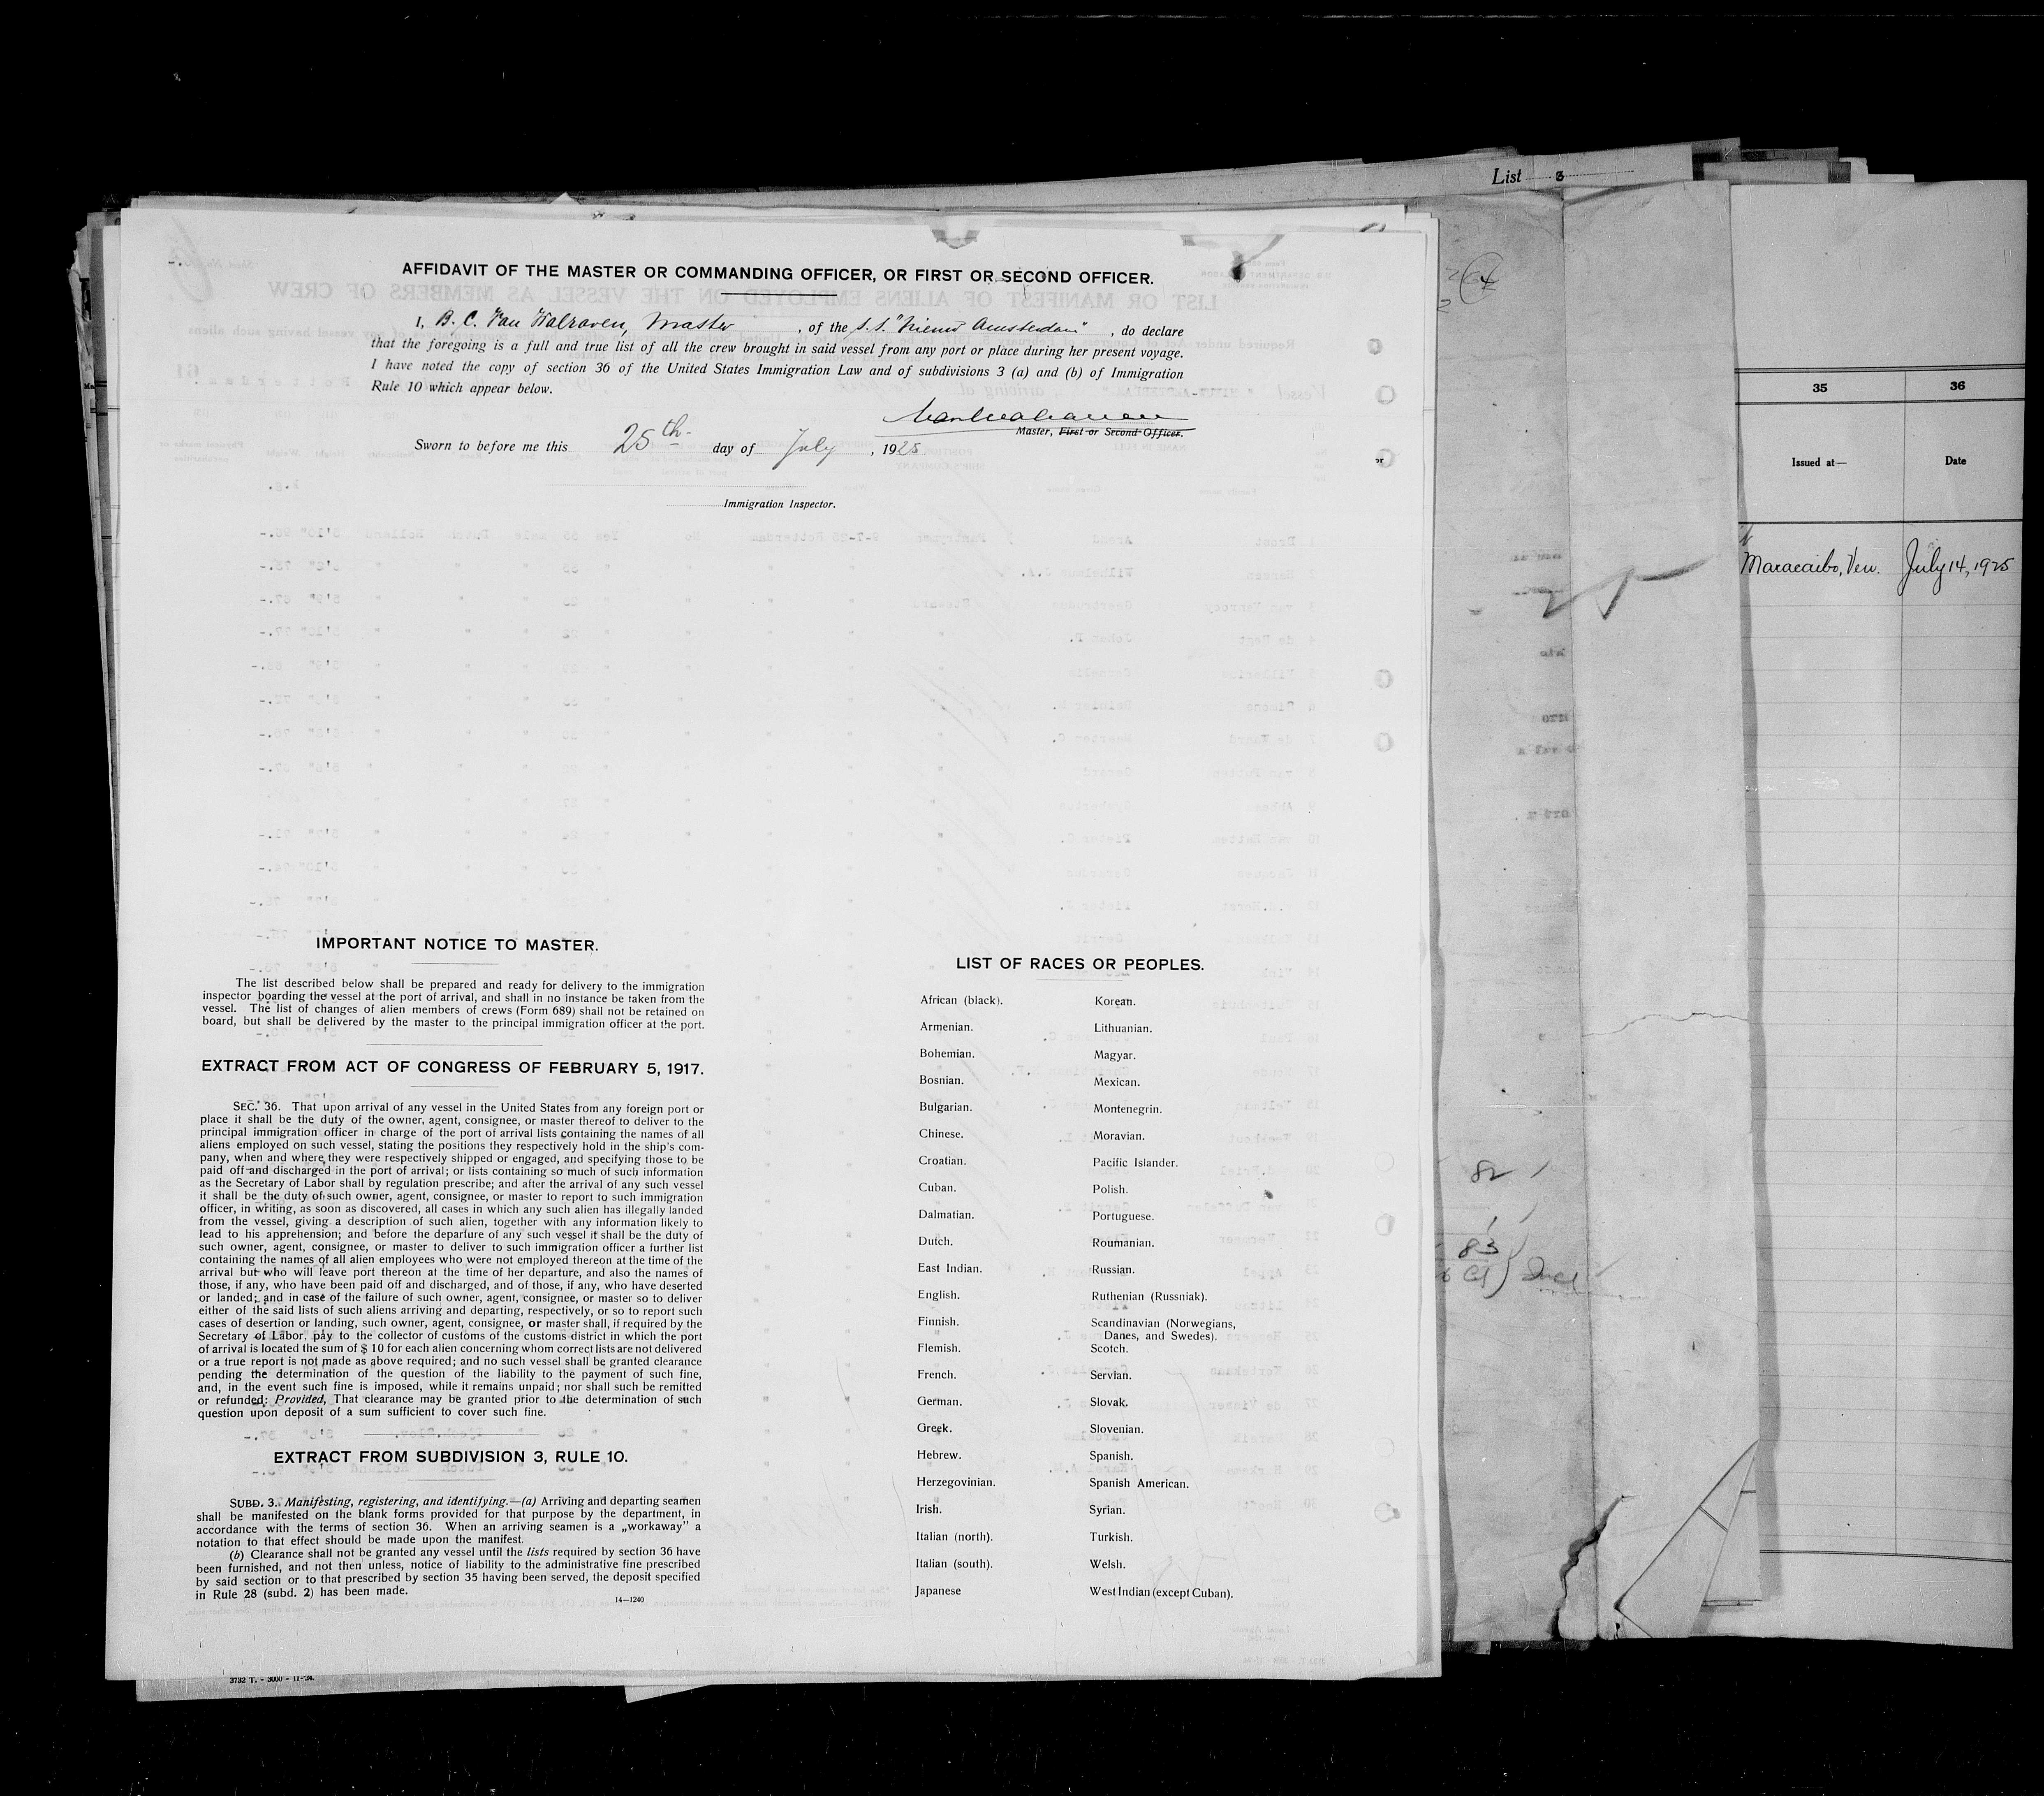 List 3
AFFIDAVIT OF THE MASTER OR COMMANDING OFFICER, OR FIRST OR SECOND OFFICER.
I, B. C. Van Walraven, Master, of the S.S. "Nieuw Amsterdam", do declare
that the foregoing is a full and true list of all the crew brought in said vessel from any port or place during her present voyage.
I have noted the copy of section 36 of the United States Immigration Law and of subdivisions 3 (a) and (b) of Immigration
Rule 10 which appear below.
Master, First or Second Officer.
Sworn to before me this 25th day of July, 1925
Immigration Inspector.
IMPORTANT NOTICE TO MASTER.
The list described below shall be prepared and ready for delivery to the immigration
inspector boarding the vessel at the port of arrival, and shall in no instance be taken from the
vessel. The list of changes of alien members of crews (Form 689) shall not be retained on
board, but shall be delivered by the master to the principal immigration officer at the port.
EXTRACT FROM ACT OF CONGRESS OF FEBRUARY 5, 1917.
SEC. 36. That upon arrival of any vessel in the United States from any foreign port or
place it shall be the duty of the owner, agent, consignee, or master thereof to deliver to the
principal immigration officer in charge of the port of arrival lists containing the names of all
aliens employed on such vessel, stating the positions they respectively hold in the ship's com-
pany, when and where they were respectively shipped or engaged, and specifying those to be
paid off and discharged in the port of arrival; or lists containing so much of such information
as the Secretary of Labor shall by regulation prescribe; and after the arrival of any such vessel
it shall be the duty of such owner, agent, consignee, or master to report to such immigration
officer, in writing, as soon as discovered, all cases in which any such alien has illegally landed
from the vessel, giving a description of such alien, together with any information likely to
lead to his apprehension; and before the departure of any such vessel it shall be the duty of
such owner, agent, consignee, or master to deliver to such immigration officer a further list
containing the names of all alien employees who were not employed thereon at the time of the
arrival but who will leave port thereon at the time of her departure, and also the names of
those, if any, who have been paid off and discharged, and of those, if any, who have deserted
or landed; and in case of the failure of such owner, agent, consignee, or master so to deliver
either of the said lists of such aliens arriving and departing, respectively, or so to report such
cases of desertion or landing, such owner, agent, consignee, or master shall, if required by the
Secretary of Labor, pay to the collector of customs of the customs district in which the port
of arrival is located the sum of $ 10 for each alien concerning whom correct lists are not delivered
or a true report is not made as above required; and no such vessel shall be granted clearance
pending the determination of the question of the liability to the payment of such fine,
and, in the event such fine is imposed, while it remains unpaid; nor shall such be remitted
or refunded: Provided, That clearance may be granted prior to the determination of such
question upon deposit of a sum sufficient to cover such fine.
EXTRACT FROM SUBDIVISION 3, RULE 10.
SUBD. 3. Manifesting, registering, and identifying.—(a) Arriving and departing seamen
shall be manifested on the blank forms provided for that purpose by the department, in
accordance with the terms of section 36. When an arriving seamen is a „workaway" a
notation to that effect should be made upon the manifest.
(b) Clearance shall not be granted any vessel until the lists required by section 36 have
been furnished, and not then unless, notice of liability to the administrative fine prescribed
by said section or to that prescribed by section 35 having been served, the deposit specified
in Rule 28 (subd. 2) has been made.
14—1240
LIST OF RACES OR PEOPLES.
African (black).
Armenian.
Bohemian.
Bosnian.
Bulgarian.
Chinese.
Croatian.
Cuban.
Dalmatian.
Dutch.
East Indian.
English.
Finnish.
Flemish.
French.
German.
Greek.
Hebrew.
Herzegovinian.
Irish.
Italian (north).
Italian (south).
Japanese
Korean.
Lithuanian.
Magyar.
Mexican.
Montenegrin.
Moravian.
Pacific Islander.
Polish.
Portuguese.
Roumanian.
Russian.
Ruthenian (Russniak).
Scandinavian (Norwegians,
Danes, and Swedes).
Scotch.
Servian.
Slovak.
Slovenian.
Spanish.
Spanish American.
Syrian.
Turkish.
Welsh.
West Indian (except Cuban).
3732 T. - 3000 - 11-24.
82
83
35
36
Issued at—
Date
Maracaibo, Ven.
July 14, 1925